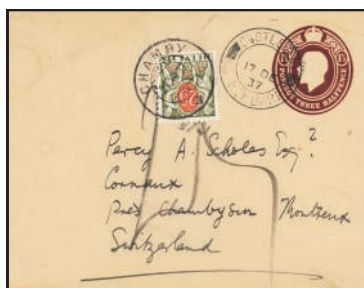 CHAMBY
17 DE
37
POSTAGE THREE HALFPENCE
Percy A. Scholes Esq?
Cornaux
près Chamby sur Montreux
Switzerland